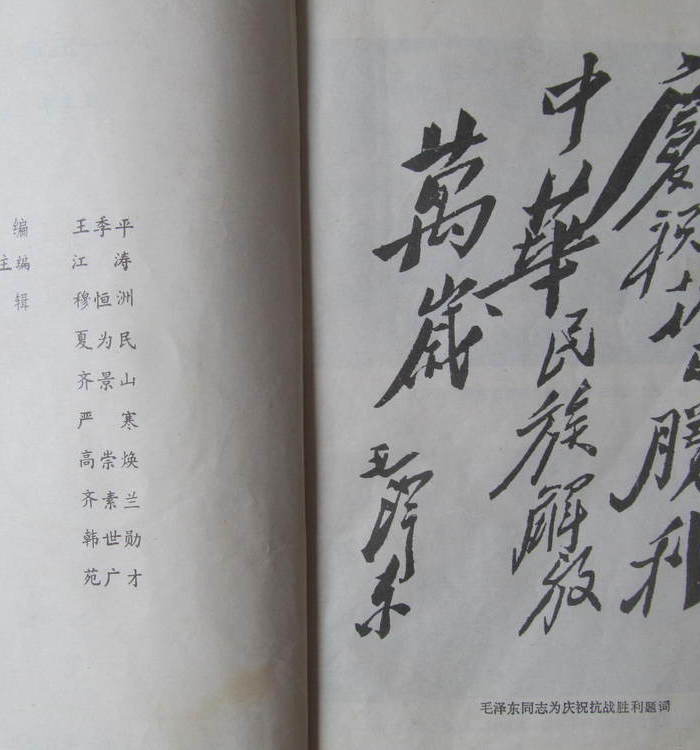 编 王季平
主编 江涛
辑 穆恒洲
夏为民
齐景山
严寒
高崇焕
齐素兰
韩世勋
苑广才
慶祝抗日勝利
中華民族解放
萬歲
毛泽东
毛泽东同志为庆祝抗战胜利题词